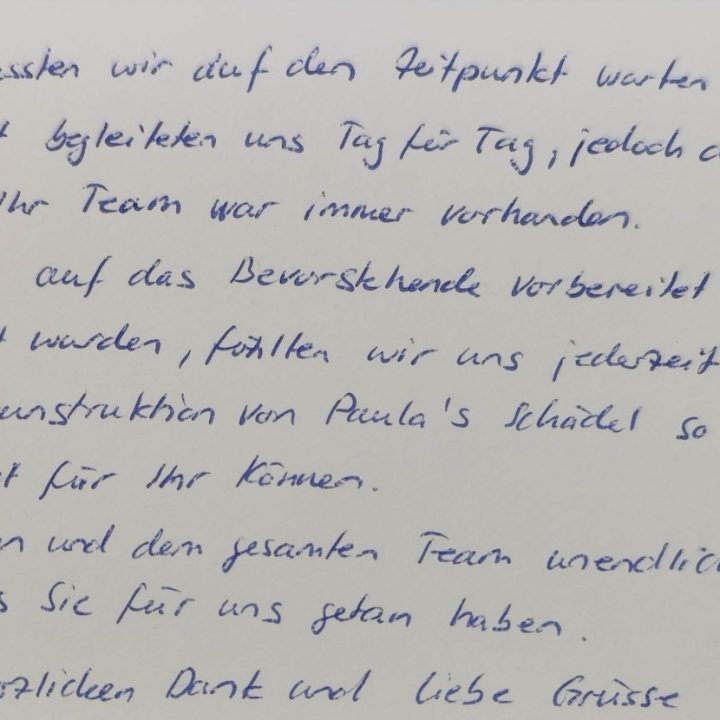 ssten wir auf den Zeitpunkt warten
t begleiteten uns Tag für Tag, jedoch d
Ihr Team war immer vorhanden.
auf das Bevorstehende vorbereitet
t wurden, fühlten wir uns jederzeit
unstruktion von Paula's Schädel so
t für Ihr Können.
en und dem gesamten Team unendlich
s Sie für uns getan haben.
rzlichen Dank und liebe Grüsse